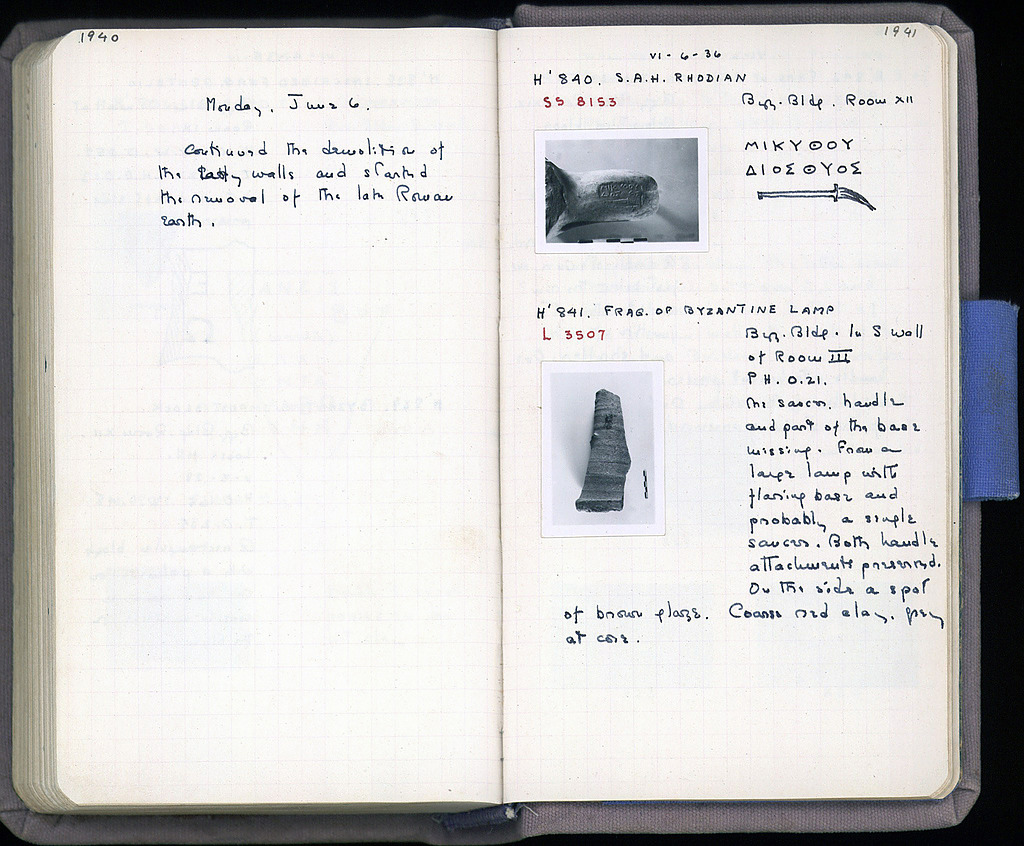 1940
Monday, June 6.
Continued the demolition of
the walls and started
the removal of the late Roman
earth.
1941
VI - 6 - 36
H' 840. S.A.H. RHODIAN
SS 8153
Byz. Bldg. Room XII
ΜΙΚΥΘΟΥ
ΔΙΟΣΘΥΟΣ
H' 841. FRAG. OF BYZANTINE LAMP
L 3507
Byz. Bldg. In S wall
of Room III
P H. 0.21.
The saucer, handle
and part of the base
missing. From a
large lamp with
flaring base and
probably a single
saucer. Both handle
attachments preserved.
On the side a spot
of brown glaze. Coarse red clay, grey
at core.